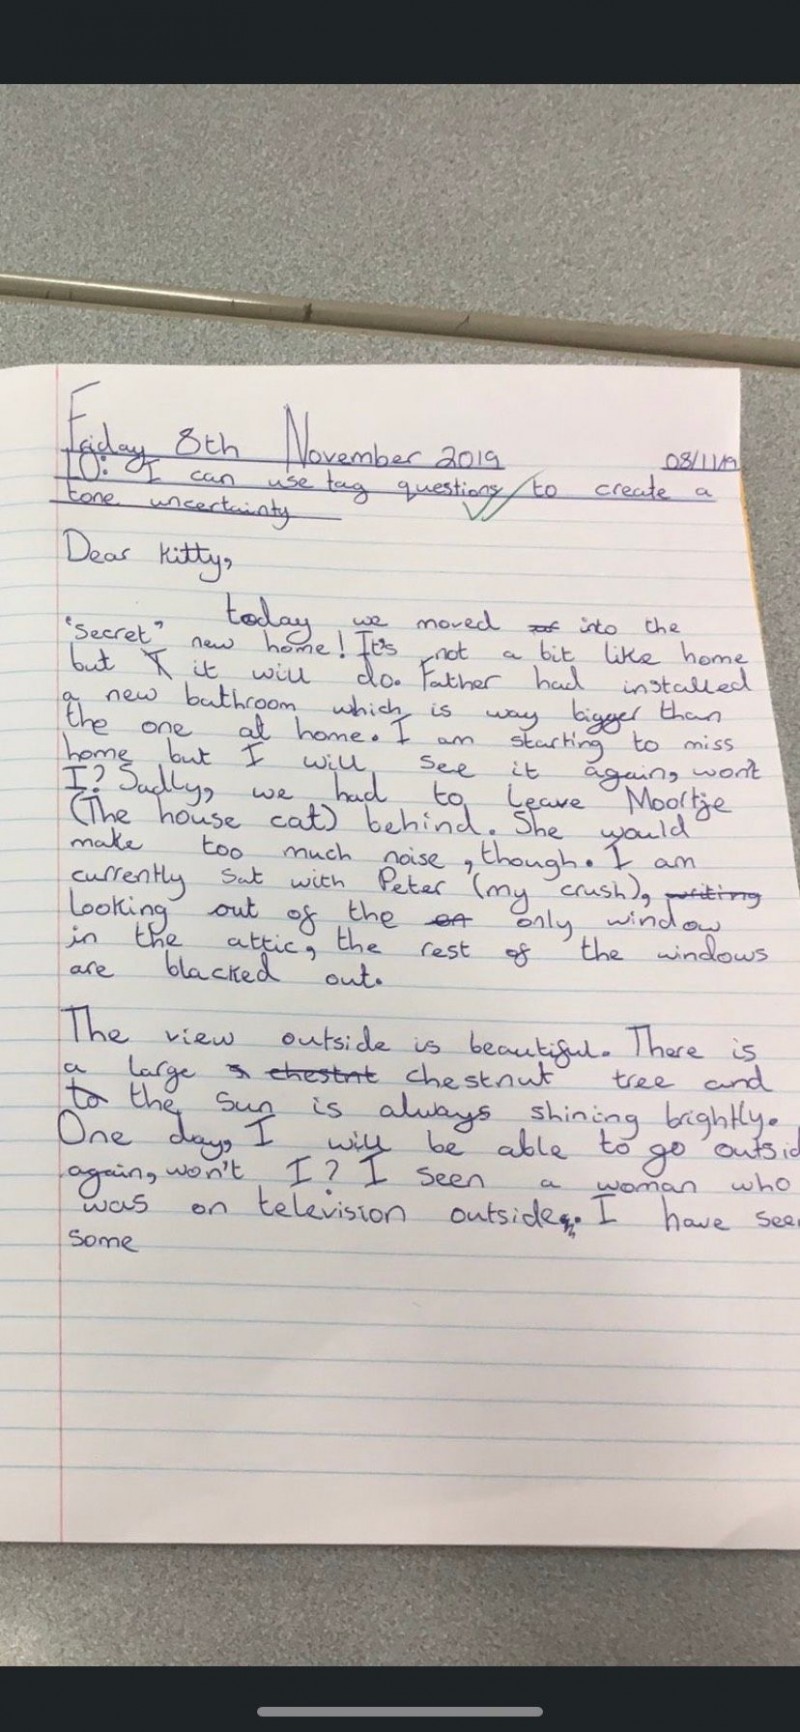 Friday 8th November 2019 08/11/19
LO: I can use tag questions to create a
tone uncertainty
Dear Kitty,
today we moved into the
"Secret" new home! It's not a bit like home
but it will do. Father had installed
a new bathroom which is way bigger than
the one at home. I am starting to miss
home but I will see it again, won't
I? Sadly, we had to leave Moortje
(The house cat) behind. She would
make too much noise, though. I am
currently sat with Peter (my crush), writing
looking out of the only window
in the attic, the rest of the windows
are blacked out.
The view outside is beautiful. There is
a large chestnt chestnut tree and
to the sun is always shining brightly.
One day, I will be able to go outsid
again, won't I? I seen a woman who
was on television outside. I have seen
some